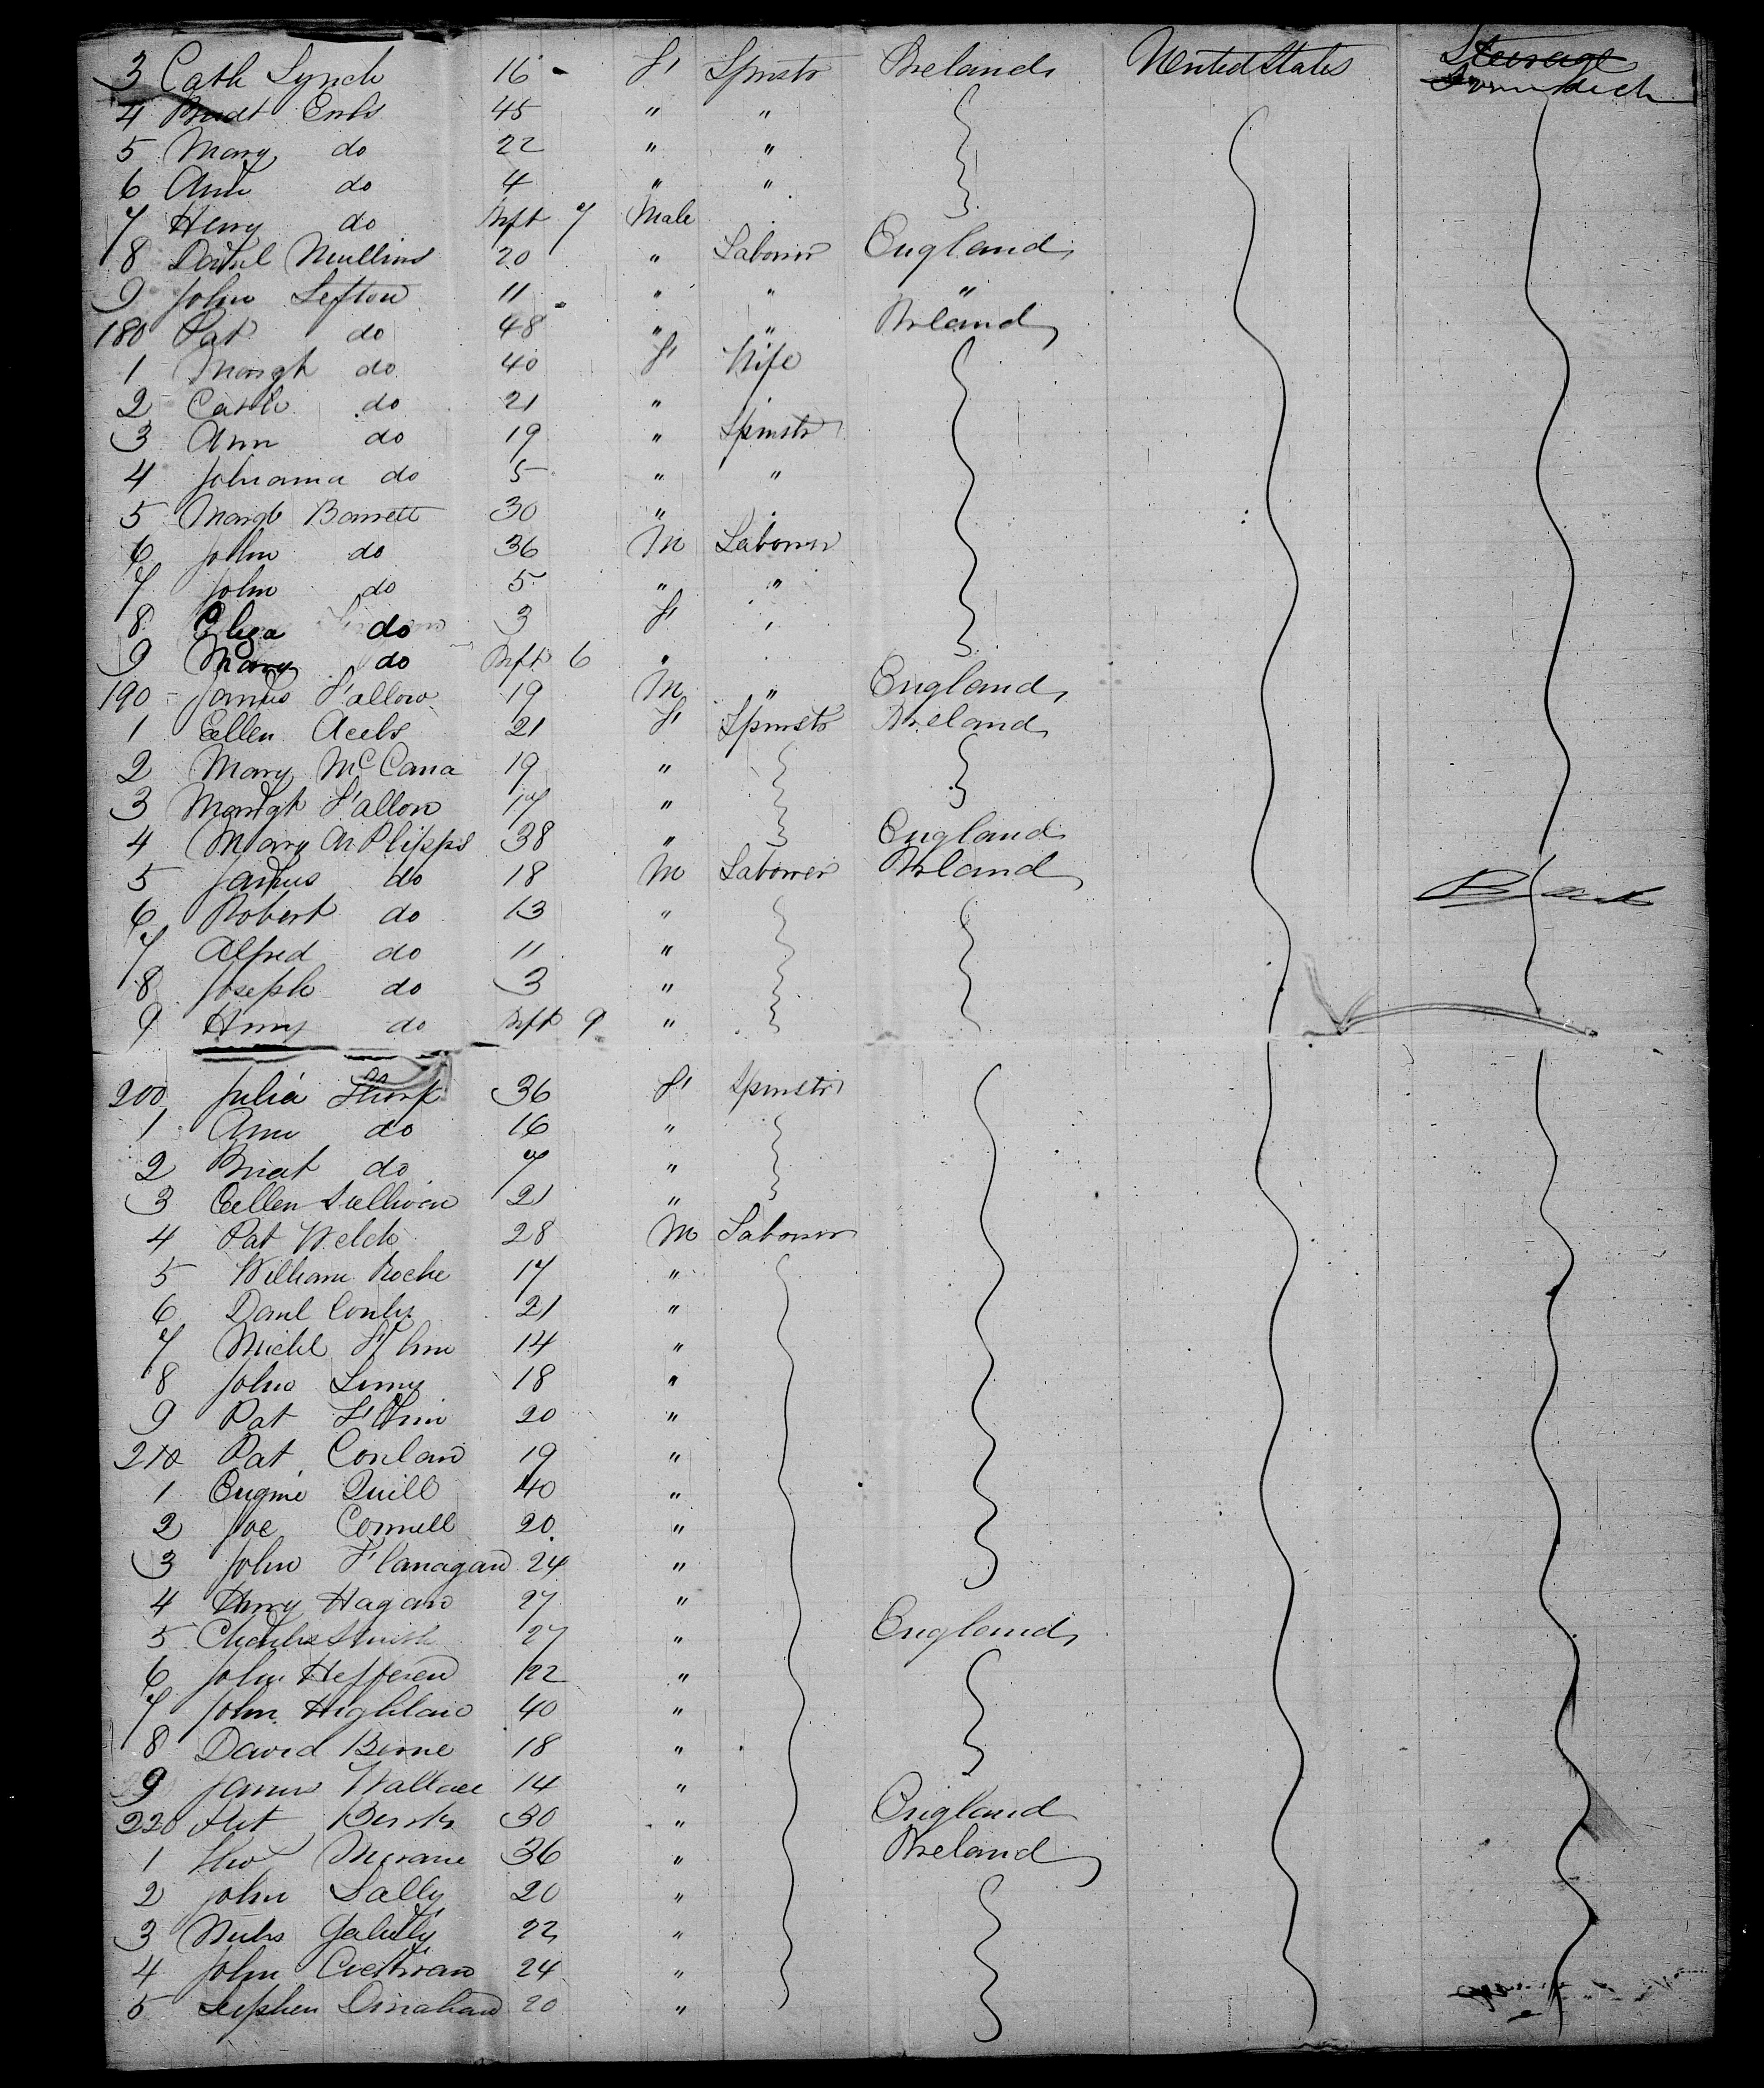 3 Cath Lynch 16 F Spinstr Ireland United States Steerage
4 Bridt 45 " "
5 Mary do 22 " "
6 Ann do 4 " "
7 Henry do Inft 7 Male
8 Daniel Mullins 20 " Laborer England
9 John Lefton 11 " " "
180 Pat do 48 " " Ireland
1 Margt do 40 F Wife
2 Cath do 21 "
3 Ann do 19 " Spinstr
4 Johanna do 5 " "
5 Margt Barrett 30 "
6 John do 36 M Laborer
7 John do 5 " "
8 Eliza do 3 F "
9 Mary do Inft 6 "
190 James Fallow 19 M " England
1 Ellen 21 F Spinstr Ireland
2 Mary McCana 19 "
3 Margt Fallon 17 "
4 Mary A Phipps 38 " England
5 James do 18 M Laborer Ireland
6 Robert do 13 "
7 Alfred do 11 "
8 Joseph do 3 "
9 Henry do Inft 9 "
200 Julia Thorp 36 F Spinstr
1 Ann do 16 "
2 do 7 "
3 Ellen Sullivan 21 "
4 Pat Welch 28 M Laborer
5 William Roche 17 "
6 Danl 21 "
7 Michl 14 "
8 John 18 "
9 Pat 20 "
210 Pat Conlan 19 "
1 Eugine Quill 40 "
2 Joe Connell 20 "
3 John Flanagan 24 "
4 Henry Hagan 27 "
5 Charles Smith 27 " England
6 John Hefferen 22 "
7 John Highlan 40 "
8 David Birne 18 "
9 James Wallace 14 "
220 30 " England
1 Tho 36 " Ireland
2 John Lally 20 "
3 22 "
4 John 24 "
5 Stephen 20 "